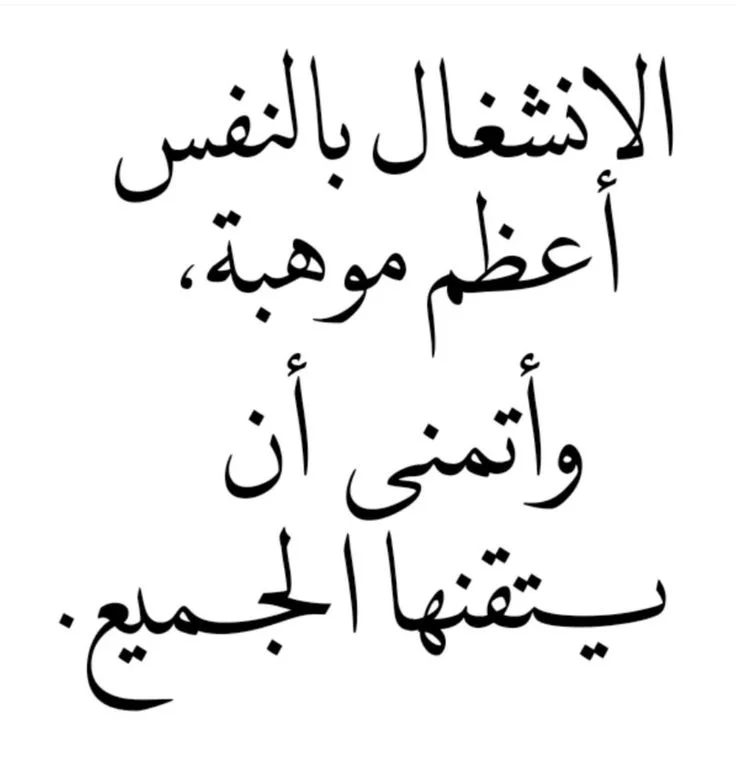 الانشغال بالنفس
أعظم موهبة،
وأتمنى أن
يتقنها الجميع.